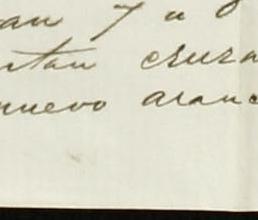 an 7 u 8
rtan cruza
nuevo aranc